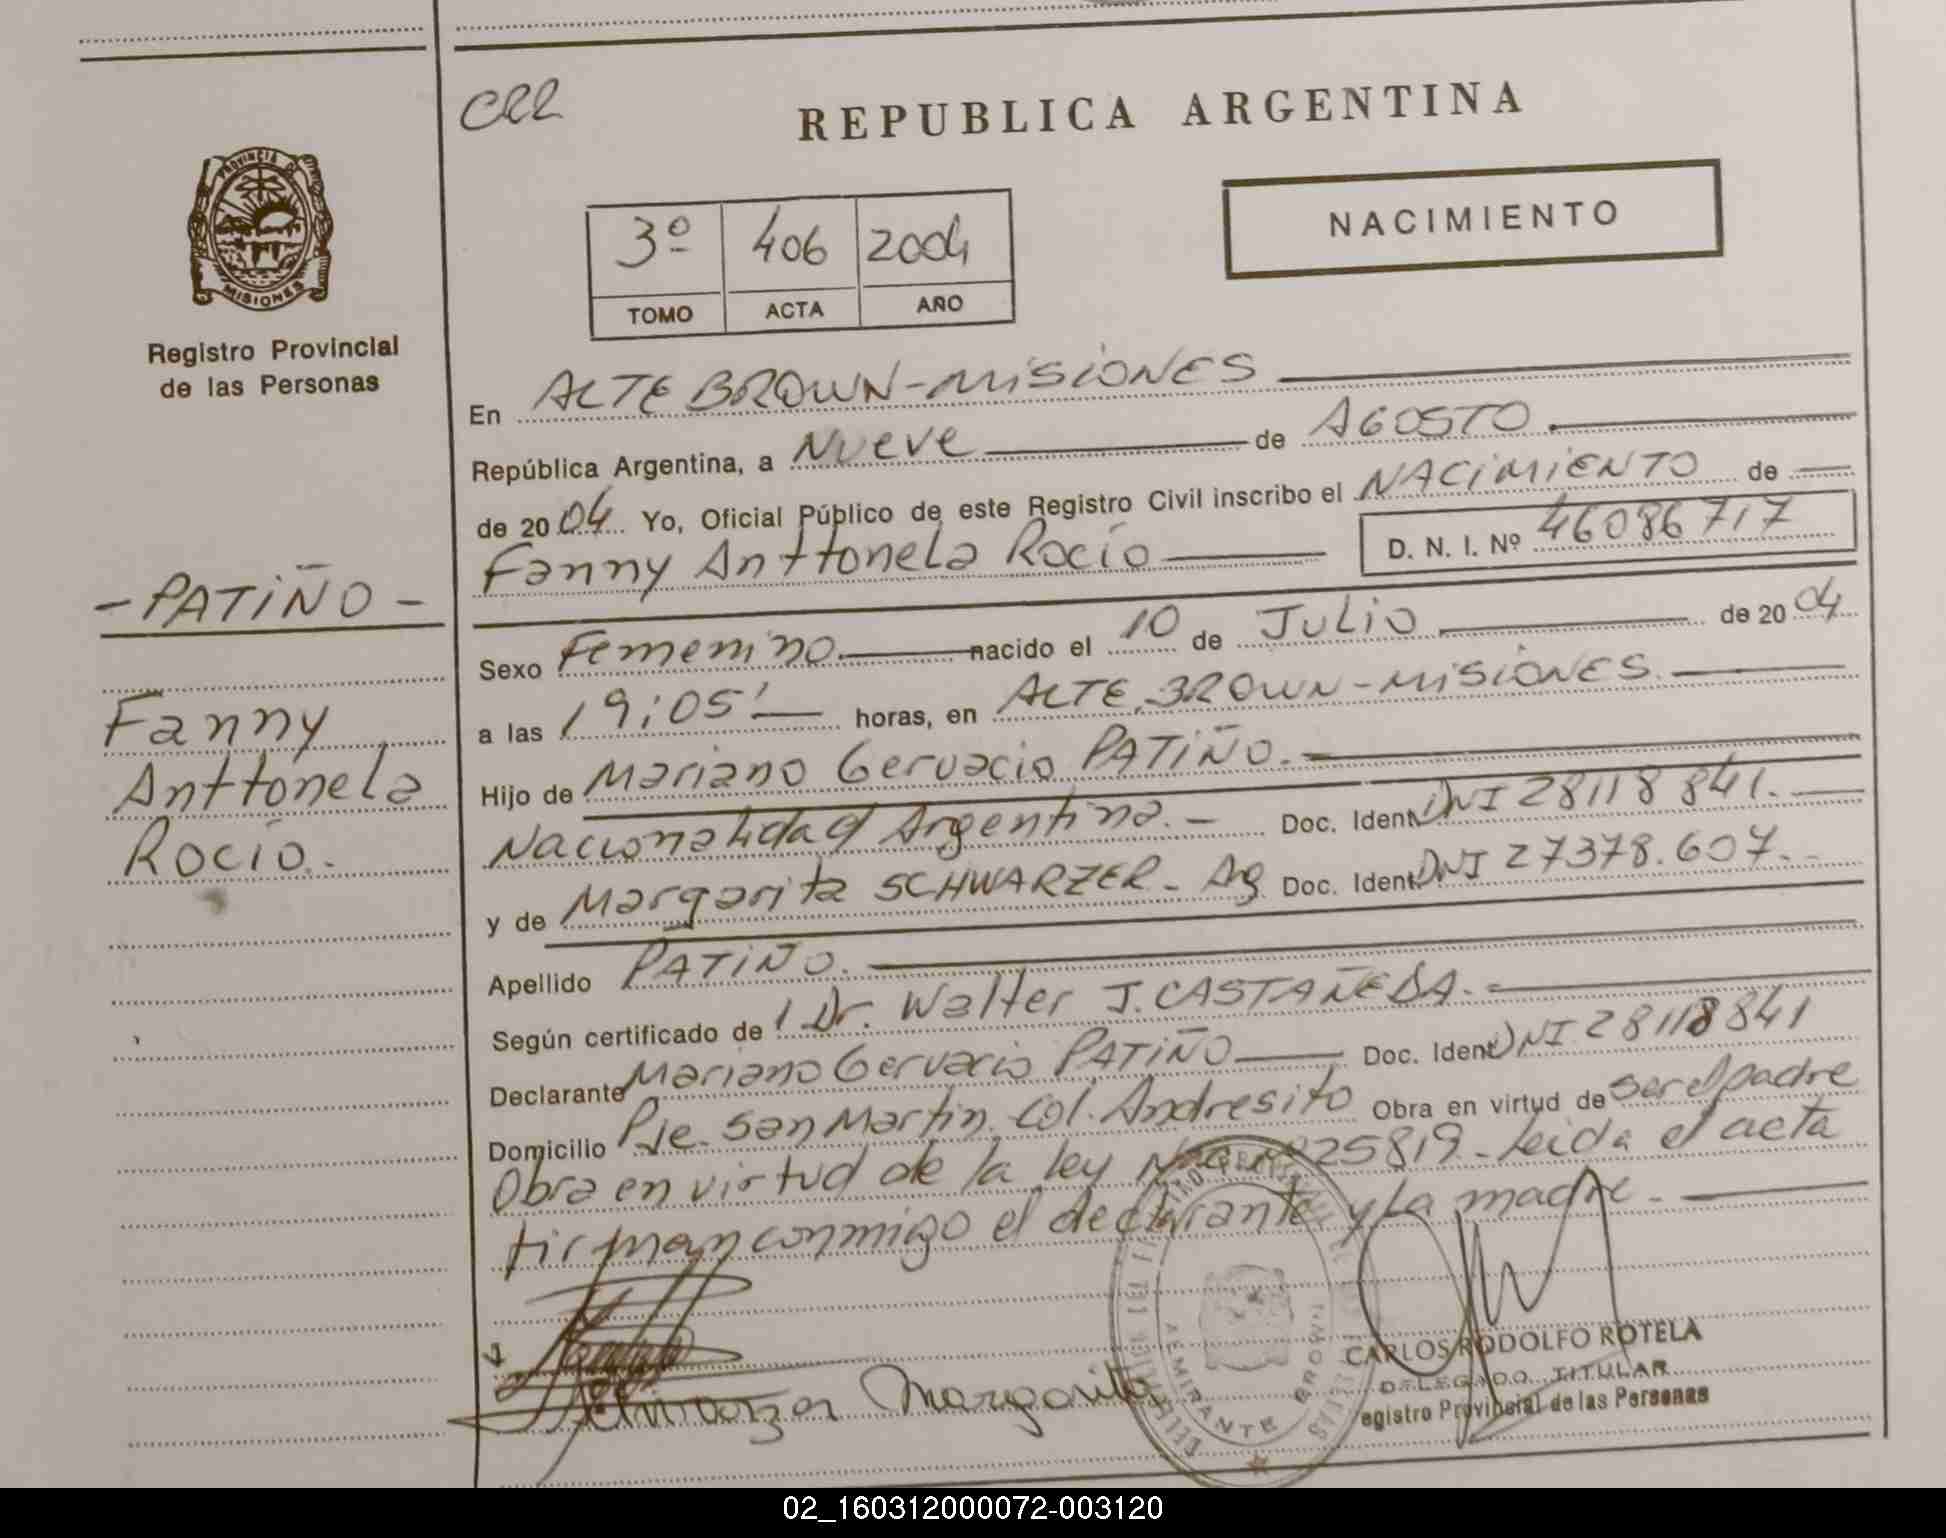 CRR
REPUBLICA ARGENTINA
PROVINCIA DE
MISIONES
Registro Provincial
de las Personas
3º 406 2004
TOMO ACTA AÑO
NACIMIENTO
En ALTE BROWN-MISIONES
República Argentina, a NUEVE de AGOSTO.
de 2004 Yo, Oficial Público de este Registro Civil inscribo el NACIMIENTO de
Fanny Anttonela Rocío D. N. I. Nº 46086717
- PATIÑO -
Fanny
Anttonela
Rocío.-
Sexo Femenino. nacido el 10 de JULIO de 2004
a las 19:05' horas, en ALTE. BROWN-MISIONES.
Hijo de Mariano Gervacio PATIÑO.-
Nacionalidad Argentina.- Doc. Ident. DNI 28118841.-
y de Margarita SCHWARZER- Arg Doc. Ident. DNI 27378.607.-
Apellido PATIÑO.
Según certificado de 1 Dr. Walter J. CASTAÑEDA.-
Declarante Mariano Gervacio PATIÑO Doc. Ident. DNI 28118841
Domicilio Pje. San Martin. Col. Andresito Obra en virtud de ser el padre
Obra en virtud de la ley 25819- Leida el acta
firman conmigo el declarante y la madre.-
Schwarzer Margarita
ALMIRANTE BROWN
CARLOS RODOLFO ROTELA
DELEGADO TITULAR
Registro Provincial de las Personas
02_160312000072-003120